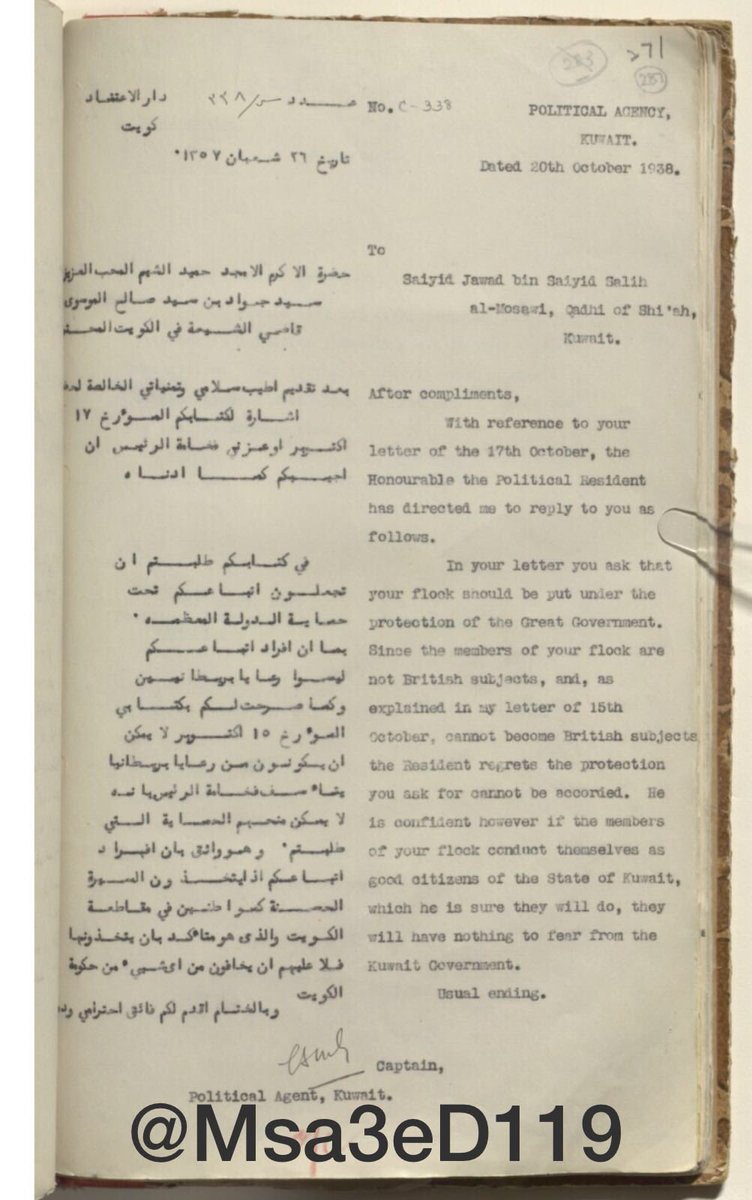 271
283
282
No. C-338
POLITICAL AGENCY,
KUWAIT.
Dated 20th October 1938.
To
Saiyid Jawad bin Saiyid Salih
al-Mosawi, Qadhi of Shi'ah,
Kuwait.
After compliments,
With reference to your
letter of the 17th October, the
Honourable the Political Resident
has directed me to reply to you as
follows.
In your letter you ask that
your flock should be put under the
protection of the Great Government.
Since the members of your flock are
not British subjects, and, as
explained in my letter of 15th
October, cannot become British subjects
the Resident regrets the protection
you ask for cannot be accorded. He
is confident however if the members
of your flock conduct themselves as
good citizens of the State of Kuwait,
which he is sure they will do, they
will have nothing to fear from the
Kuwait Government.
Usual ending.
دار الاعتضاد
عدد س/٣٣٨
كويت
تاريخ ٢٦ شعبان ١٣٥٧.
حضرة الاكرم الامجد حميد الشيم المحب العزيز
سيد جواد بن سيد صالح الموسوى
قاضي الشيعة في الكويت
بعد تقديم اطيب سلامي وتمنياتي الخالصة
اشارة لكتابكم المؤرخ ١٧
اكتوبر اوعزني فخامة الرئيس ان
اجيبكم كما ادناه
في كتابكم طلبتم ان
تجعلون اتباعكم تحت
حماية الدولة المعظمه.
بما ان افراد اتباعكم
ليسوا رعايا بريطانيين
وكما صرحت لكم بكتابي
المؤرخ ١٥ اكتوبر لا يمكن
ان يكونون من رعايا بريطانيا
يتاسف فخامة الرئيس بانه
لا يمكن منحهم الحماية التي
طلبتم. وهو واثق بان افراد
اتباعكم اذ ايتخذون السيرة
الحسنة كمواطنين في مقاطعة
الكويت والذى هو متاكد بان يتخذونها
فلا عليهم ان يخافون من اى شيء من حكومة
الكويت
وبالختام اقدم لكم فائق احترامي
Captain,
Political Agent, Kuwait.
@Msa3eD119